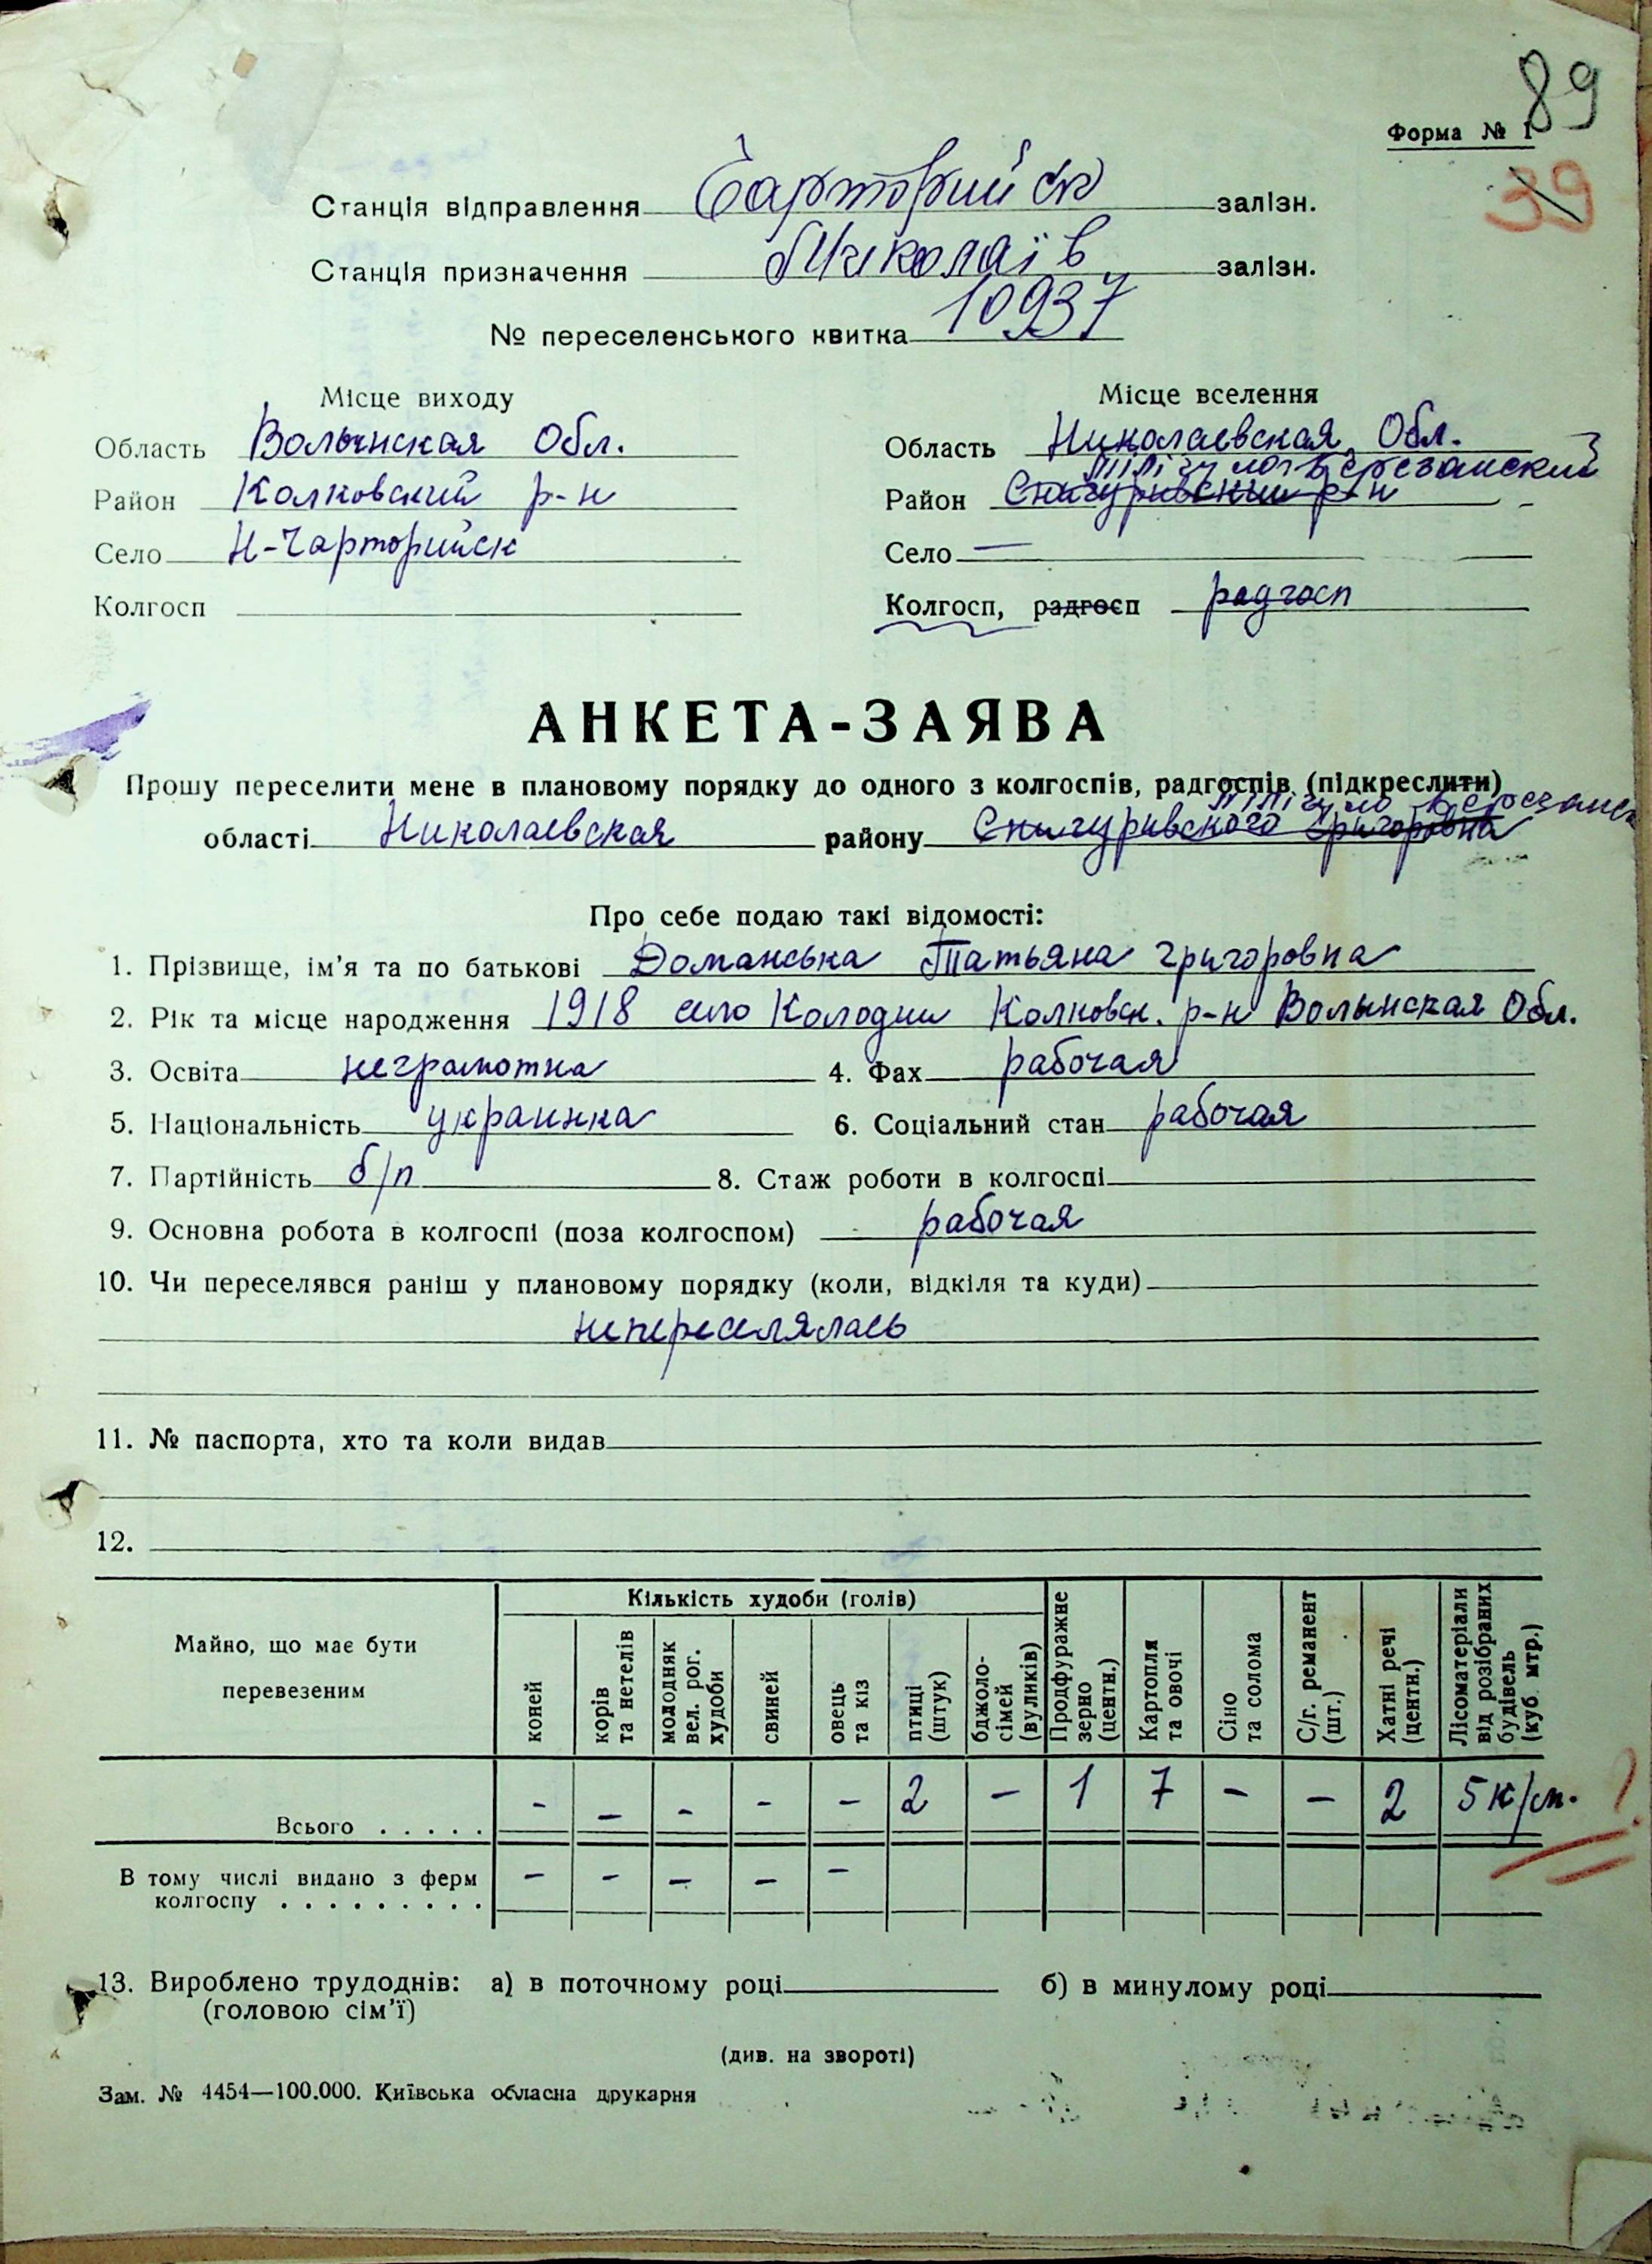 89
Форма № 1
39
Станція відправлення Чарторийск залізн.
Станція призначення Миколаїв залізн.
№ переселенського квитка 10937
Місце виходу
Місце вселення
Область Волынская Обл.
Область Николаевская Обл.
Березанский
Район Колковский р-н
Район Снигуривский р-н
Село Н-Чарторийск
Село —
Колгосп
Колгосп, радгосп радгосп
АНКЕТА-ЗАЯВА
Прошу переселити мене в плановому порядку до одного з колгоспів, радгоспів (підкреслити)
області Николаевская району Снигуривского Григоровна
Про себе подаю такі відомості:
1. Прізвище, ім'я та по батькові Доманська Татьяна Григоровна
2. Рік та місце народження 1918 село Колодии Колковск. р-н Волынская Обл.
3. Освіта неграмотна 4. Фах рабочая
5. Національність украинка 6. Соціальний стан рабочая
7. Партійність б/п 8. Стаж роботи в колгоспі
9. Основна робота в колгоспі (поза колгоспом) рабочая
10. Чи переселявся раніш у плановому порядку (коли, відкіля та куди)
непереселялась
11. № паспорта, хто та коли видав
12.
Майно, що має бути перевезеним
Кількість худоби (голів)
коней
корів та нетелів
молодняк вел. рог. худоби
свиней
овець та кіз
птиці (штук)
бджоло-сімей (вуликів)
Продфуражне зерно (центн.)
Картопля та овочі
Сіно та солома
С/г. реманент (шт.)
Хатні речі (центн.)
Лісоматеріали від розібраних будівель (куб. мтр.)
Всього . . . . . - - - - - 2 - 1 7 - - 2 5 к/м.
В тому числі видано з ферм
колгоспу . . . . . . . . . - - - - -
13. Вироблено трудоднів: а) в поточному році б) в минулому році
(головою сім'ї)
(див. на звороті)
Зам. № 4454—100.000. Київська обласна друкарня